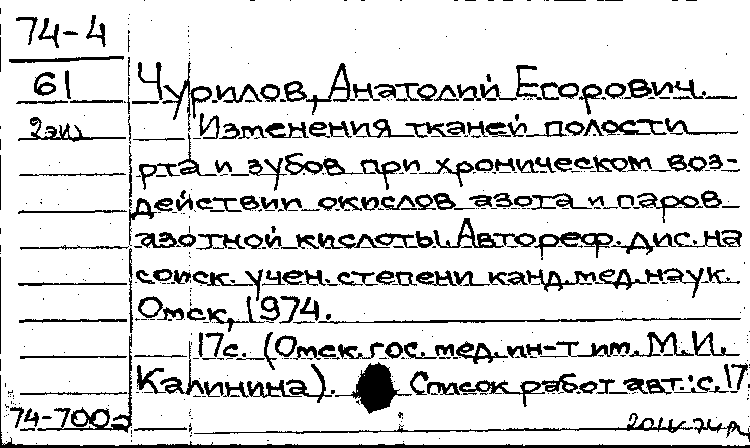 74-4
61
2экз
Чурилов, Анатолий Егорович.
Изменения тканей полости
рта и зубов при хроническом воз-
действии окислов азота и паров
азотной кислоты. Автореф. дис. на
соиск. учен. степени канд. мед. наук.
Омск, 1974.
17с. (Омск. гос. мед. ин-т им. М.И.
Калинина). Список работ авт.: с. 17
74-700а